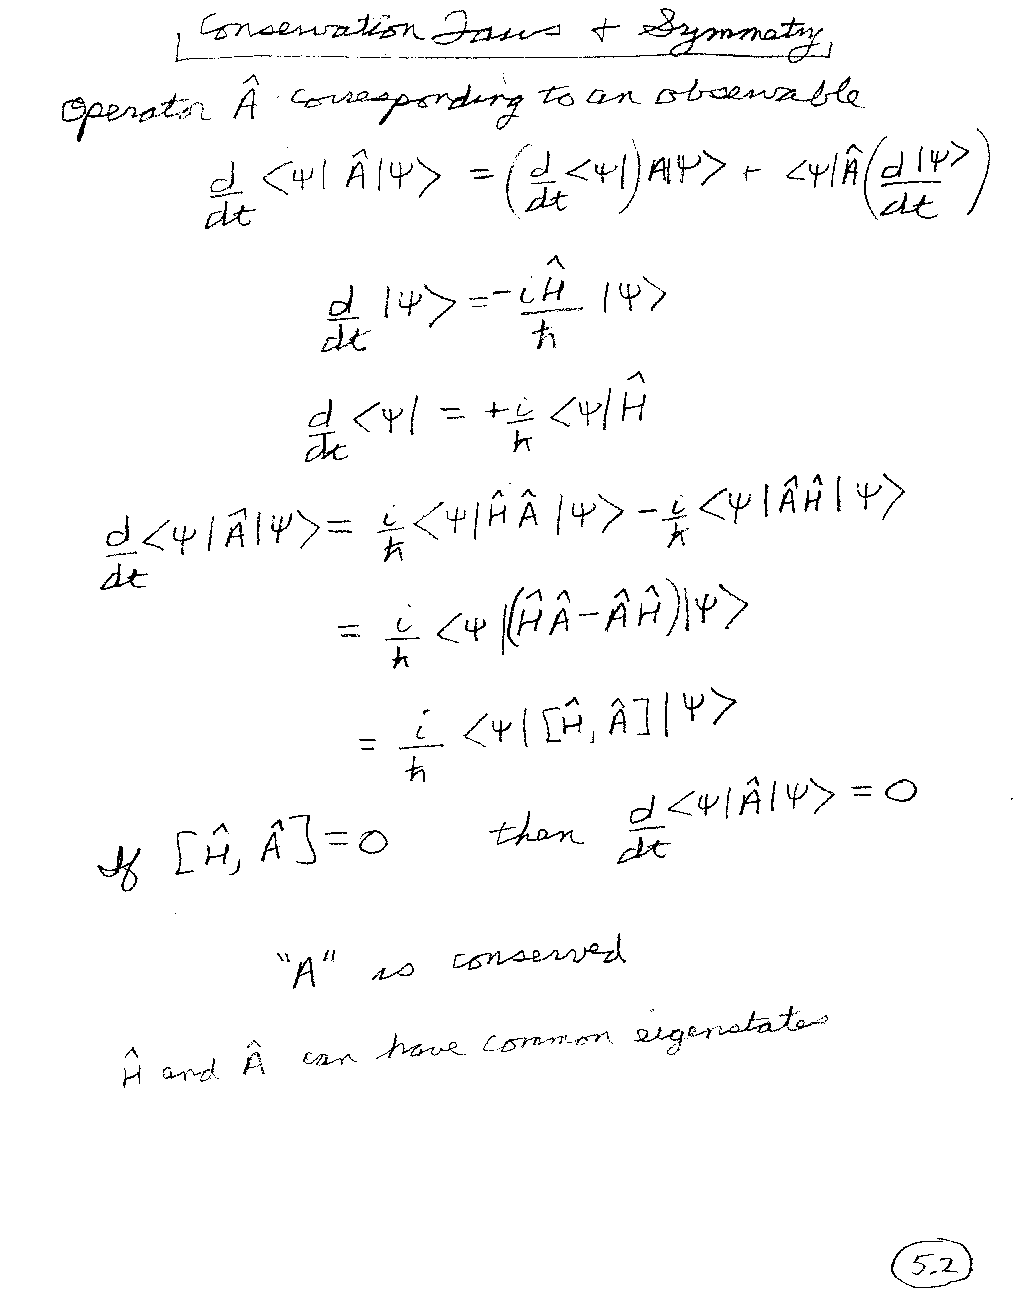 Conservation Laws + Symmetry
Operator Â corresponding to an observable
d/dt <ψ| Â |ψ> = (d/dt <ψ|) A|ψ> + <ψ|Â (d|ψ>/dt)
d/dt |ψ> = -iĤ/ħ |ψ>
d/dt <ψ| = +i/ħ <ψ|Ĥ
d/dt <ψ|Â|ψ> = i/ħ <ψ|ĤÂ|ψ> - i/ħ <ψ|ÂĤ|ψ>
= i/ħ <ψ|(ĤÂ-ÂĤ)|ψ>
= i/ħ <ψ|[Ĥ, Â]|ψ>
If [Ĥ, Â]=0 then d/dt <ψ|Â|ψ> = 0
"A" is conserved
Ĥ and Â can have common eigenstates
5.2